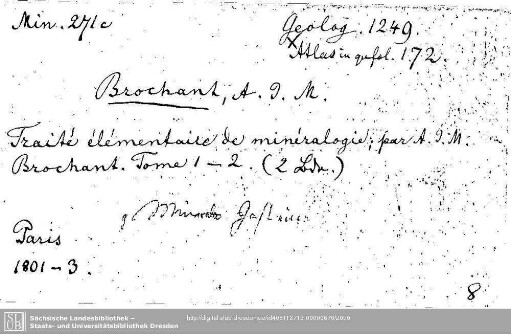 Min. 271c
Geolog. 1249.
Atlas in qufol. 172.
Brochant, A. J. M.
Traité élémentaire de minéralogie; par A. J. M.
Brochant. Tome 1 – 2. (2 Bdn.)
Paris
1801 – 3.
8
Sächsische Landesbibliothek –
Staats- und Universitätsbibliothek Dresden